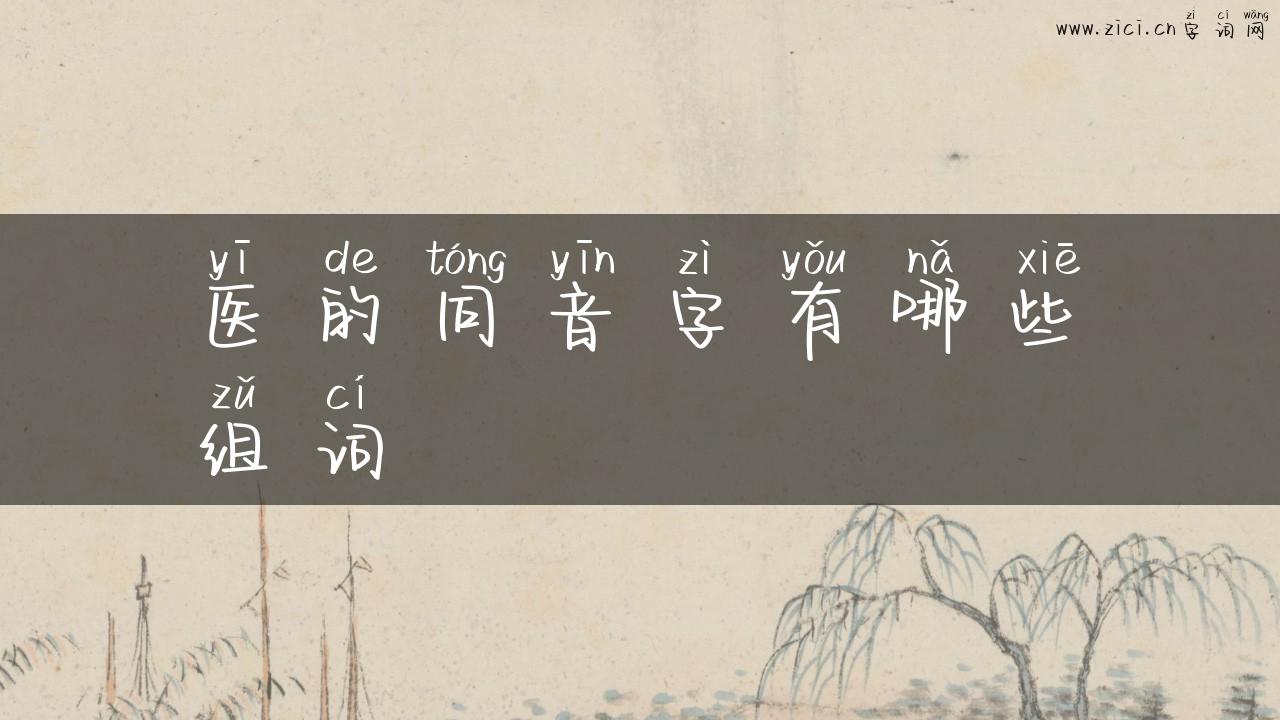 zì cí wǎng
www.zici.cn 字词网
yī de tóng yīn zì yǒu nǎ xiē
医的同音字有哪些
zǔ cí
组词